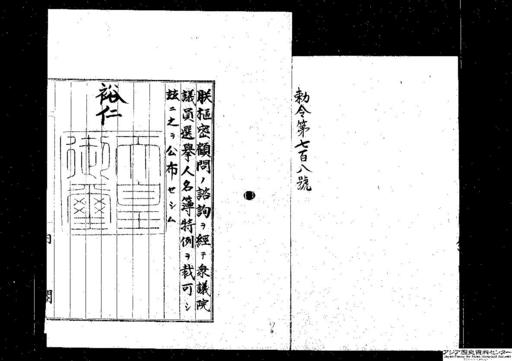 勅令第七百八號
朕樞密顧問ノ諮詢ヲ經テ衆議院
議員選擧人名簿特例ヲ裁可シ
玆ニ之ヲ公布セシム
裕仁
天皇
御璽
内閣
アジア歴史資料センター